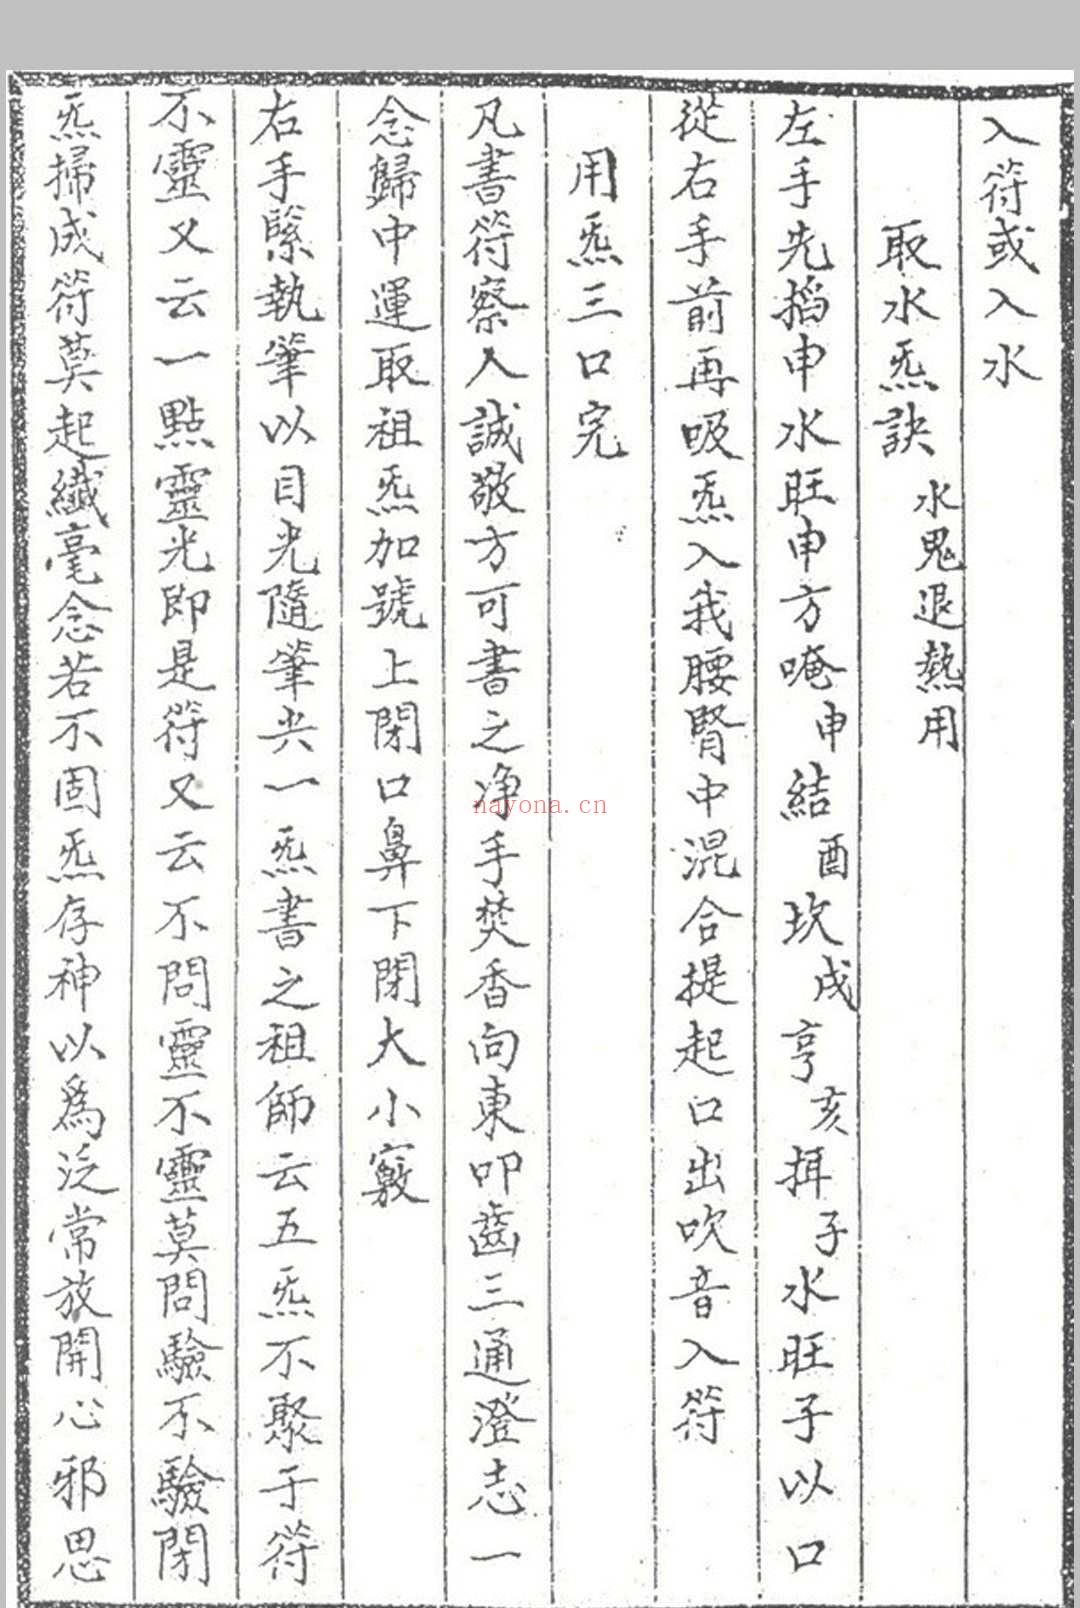 入符或入水
取水炁訣 水鬼退熱用
左手先搯申水旺申方唵申結酉坎戌亨亥揖子水旺子以口
從右手前再吸炁入我腰腎中混合提起口出吹音入符
用炁三口完
凡書符察入誠敬方可書之净手焚香向東叩齒三通澄志一
念歸中運取祖炁加號上閉口鼻下閉大小竅
右手緊執筆以目光隨筆共一炁書之祖師云五炁不聚于符
不靈又云一點靈光即是符又云不問靈不靈莫問驗不驗閉
炁掃成符莫起纖毫念若不固炁存神以爲泛常放開心邪思
nayona.cn